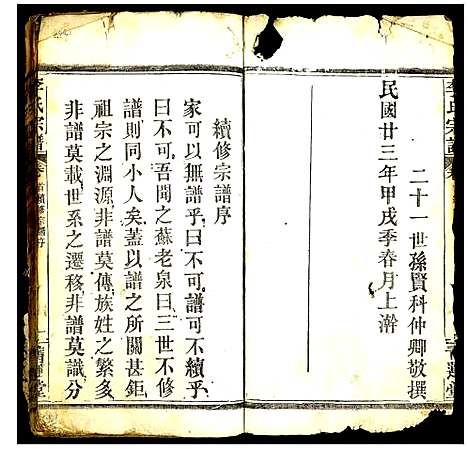 二十一世孫賢科仲卿敬撰
民國廿三年甲戌季春月上澣
續修宗譜序
家可以無譜乎曰不可譜可不續乎
曰不可吾聞之蘇老泉曰三世不修
譜則同小人矣蓋以譜之所關甚鉅
祖宗之淵源非譜莫傳族姓之繁多
非譜莫載世系之遷移非譜莫識分
李氏宗譜
卷首 續修宗譜序